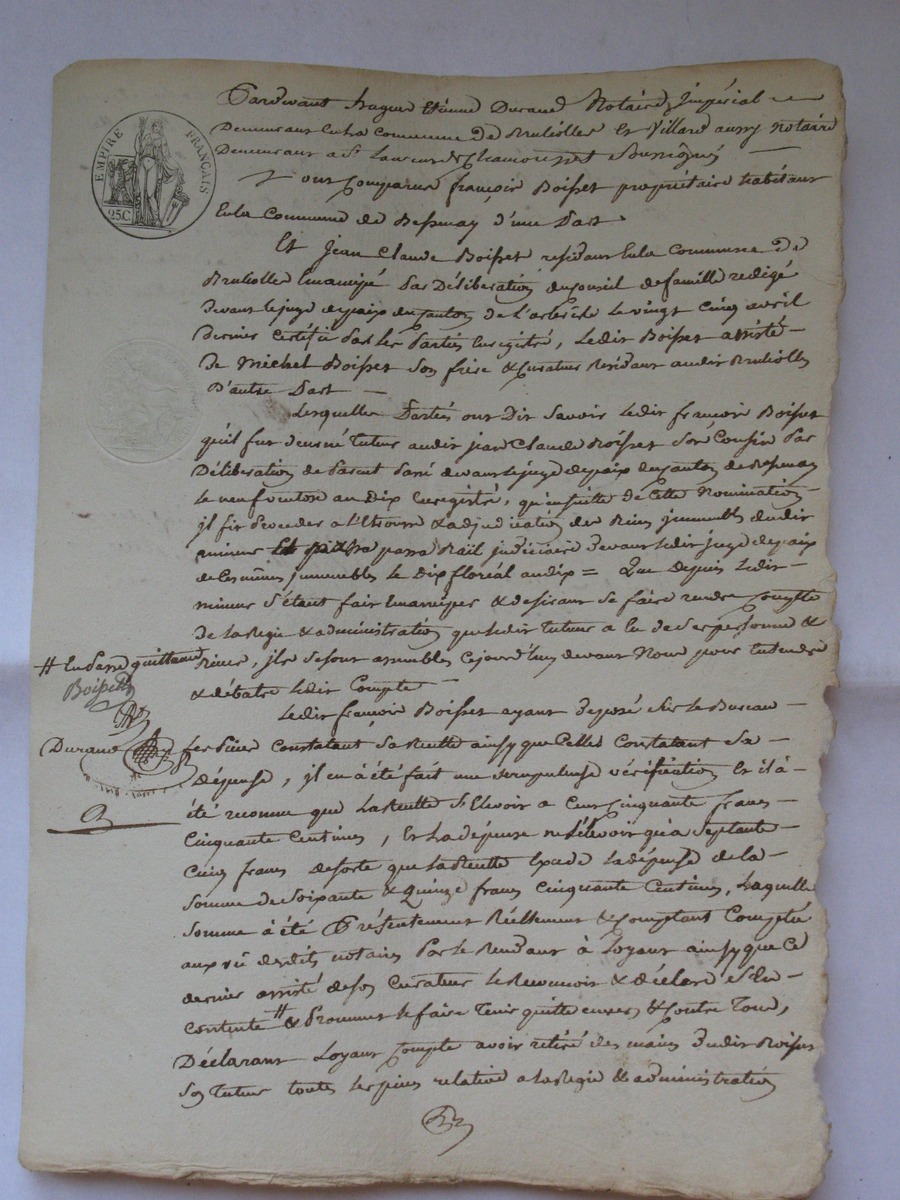 EMPIRE FRANÇAIS
25C
Pardevant Etienne Durand Notaire Impérial
Demeurant en la Commune de Brulliolles Et Villard aussy notaire
Demeurant a St Laurent de Chamousset Soussignés
Sont Comparus françois Boisset propriétaire habitant
En la Commune de Bessenay d'une Part
Et Jean Claude Boisset résidant En la Commune de
Brullolle Emancipé Par Déliberation du Conseil de famille redigé
devant le juge de paix du canton de l'arbrêle le vingt Cinq avril
Dernier Certifié Par les Parties Enregistré, Ledit Boisset assisté
De Michel Boisset Son frère & Curateur Résidant audit Brullolles
D'autre Part
Lesquelles Parties ont Dit Savoir Ledit françois Boisset
qu'il fut nommé tuteur audit jean Claude Boisset Son Cousin Par
Déliberation de Parent Passé devant le juge de paix du canton de Bessenay
le neuf ventose an Dix Enregistré, qu'ensuitte de Cette Nomination
il fit Proceder a & adjudication des Biens immeubles dudit
mineur passa Bail judiciaire devant ledit juge de paix
de Ces mêmes immeubles le Dix floréal an dix = Que depuis Ledit
mineur S'étant fait Emanciper & desirant Se faire rendre Compte
de la Regie & administration que ledit tuteur a Eu de Ses personne &
Biens, ils Se Sont assemblés Cejourd'huy devant Nous pour Entendre
& débatre Ledit Compte
# En Passe quittance
Boisset
Durand
Ledit françois Boisset ayant Déposé Sur le Bureau
Les Pièces Constatant Sa Recette ainsy que Celles Constatant Sa
Dépense, il en a été fait une Scrupuleuse vérification Et il a
été reconnu que La Recette S'Elevoit a Cent Cinquante francs
Cinquante Centimes, Et La dépense ne S'élevoit qu'a Septante
Cinq francs de Sorte que La Recette Excede La dépense de la
Somme de Soixante & Quinze francs Cinquante Centimes, Laquelle
Somme a été Présentement Réellement & Comptant Comptée
aux vû desdits notaires Par le Rendant à Loyant ainsy que Ce
dernier assisté de Son Curateur Le Reconnoit & déclare S'En
Contenté # & Promet le faire Tenir quitte envers & Contre Tous,
Déclarant Loyant Compte avoir retiré des mains dudit Boisset
Son Tuteur toutes Les pièces relative a La Regie & administration